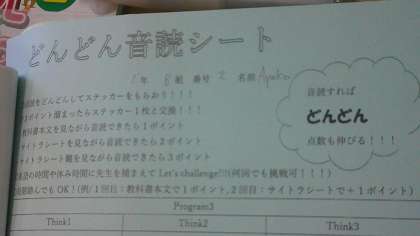 どんどん音読シート
年 組 番号 2 名前 Ayaka
音読すれば
どんどん
点数も伸びる！！！
をどんどんしてステッカーをもらおう！！！
ポイント溜まったらステッカー1枚と交換！！！
教科書本文を見ながら音読できたら1ポイント
サイトラシートを見ながら音読できたら2ポイント
サイトラシート観を見ながら音読できたら3ポイント
の時間や休み時間に先生を捕まえて Let's challenge!!!(何回でも挑戦可！！！)
もOK！(例/1回目：教科書本文で1ポイント,2回目：サイトラシートで＋1ポイント)
Program3
Think1 Think2 Think3